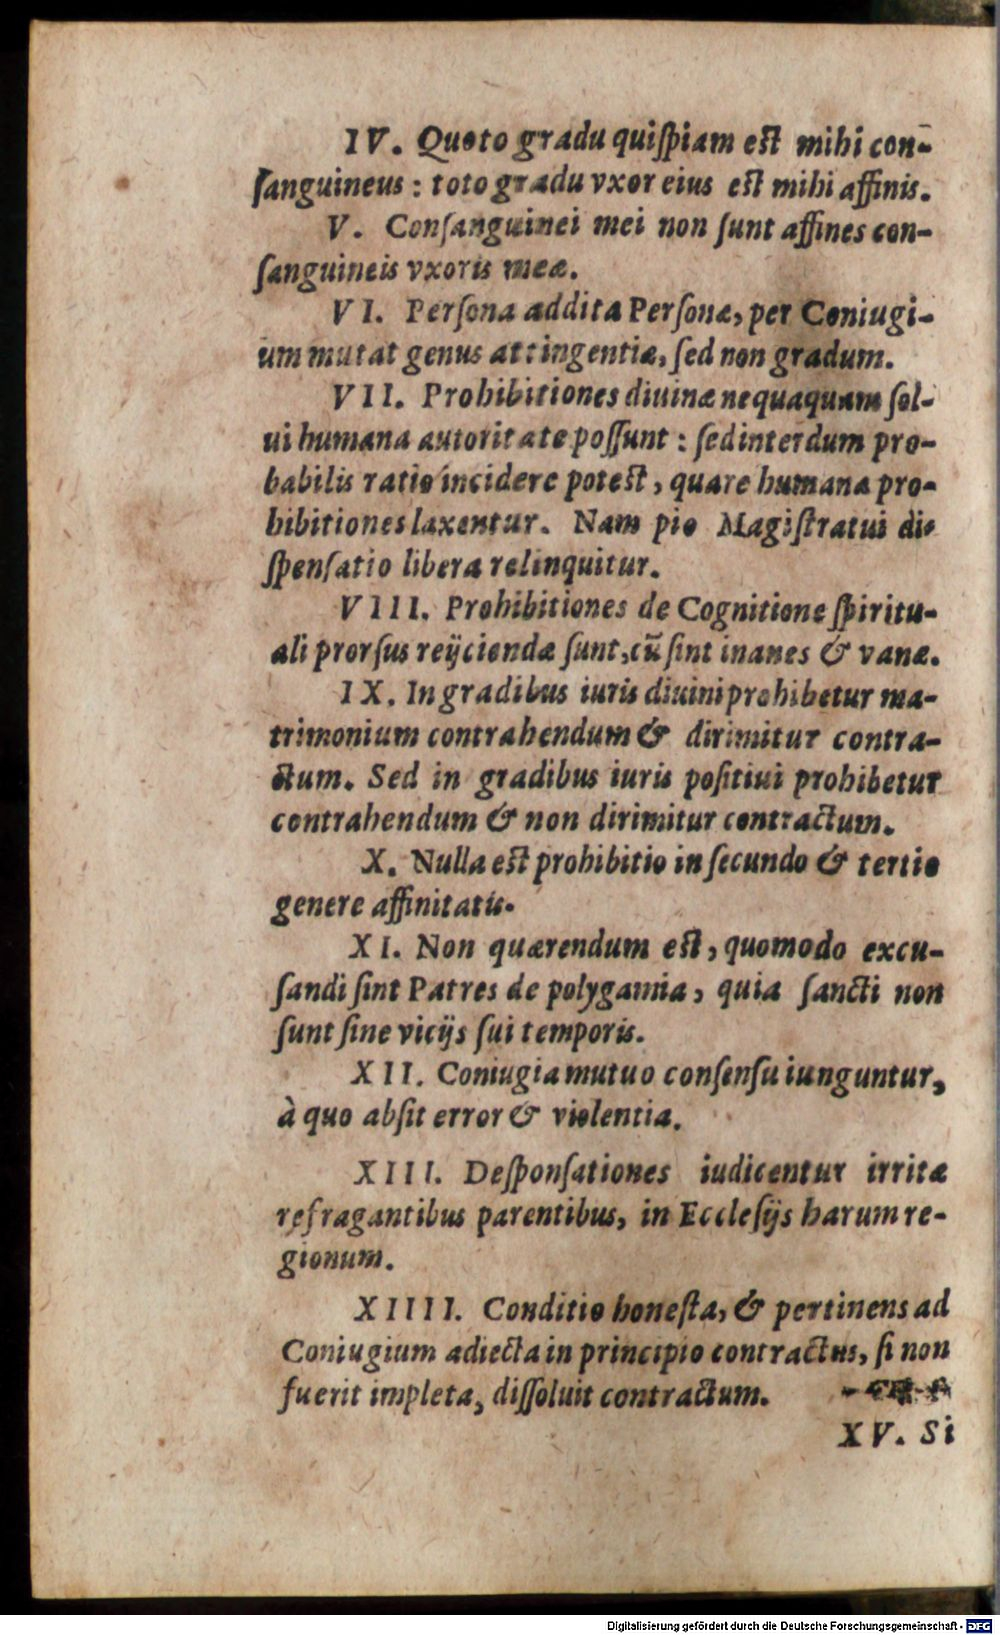 IV. Quoto gradu quiſpiam eſt mihi con-
ſanguineus : toto gradu vxor eius eſt mihi affinis.
V. Conſanguinei mei non ſunt affines con-
ſanguineis vxoris meæ.
VI. Perſona addita Perſonæ, per Coniugi-
um mutat genus attingentiæ, ſed non gradum.
VII. Prohibitiones diuinæ nequaquam ſol-
ui humana autoritate poſſunt : ſed interdum pro-
babilis ratio incidere poteſt, quare humana pro-
hibitiones laxentur. Nam pio Magiſtratui di-
ſpenſatio libera relinquitur.
VIII. Prohibitiones de Cognitione ſpiritu-
ali prorſus reijciendæ ſunt, cũ ſint inanes & vanæ.
IX. In gradibus iuris diuini prohibetur ma-
trimonium contrahendum & dirimitur contra-
ctum. Sed in gradibus iuris poſitiui prohibetur
contrahendum & non dirimitur contractum.
X. Nulla eſt prohibitio in ſecundo & tertio
genere affinitatis.
XI. Non quærendum eſt, quomodo excu-
ſandi ſint Patres de polygamia, quia ſancti non
ſunt ſine vicijs ſui temporis.
XII. Coniugia mutuo conſenſu iunguntur,
à quo abſit error & violentia.
XIII. Deſponſationes iudicentur irritæ
refragantibus parentibus, in Eccleſijs harum re-
gionum.
XIIII. Conditio honeſta, & pertinens ad
Coniugium adiecta in principio contractus, ſi non
fuerit impleta, diſſoluit contractum.
XV. Si
Digitalisierung gefördert durch die Deutsche Forschungsgemeinschaft - DFG